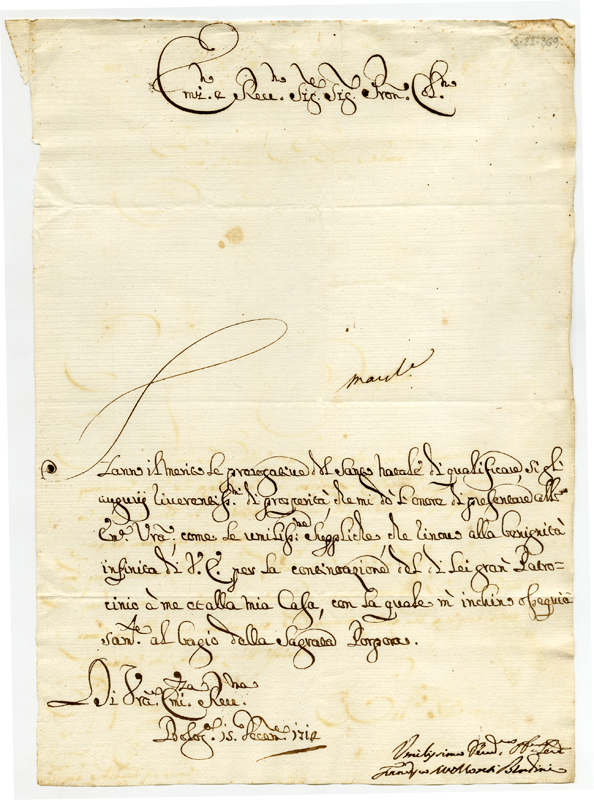 Emi. e Reve. Sig. Sig. Pron. Col.
Hanno il merito le prerogative del Santo Natale di qualificare, si gl'
augurij riverentiss.mi di prosperità, che mi dò l'onore di presentare all'
Em. Vra. come le umiliss.me Suppliche, che rinovo alla benignità
infinita di V. E. per la continuazione del di Lei gran Patro-
cinio à me et alla mia Casa, con la quale m'inchino ossequio
sam.te al bagio della Sagrata Porpora.
Di Vra. Emi. Reve.
Bolog. 15. Decem. 1714
Umilissimo